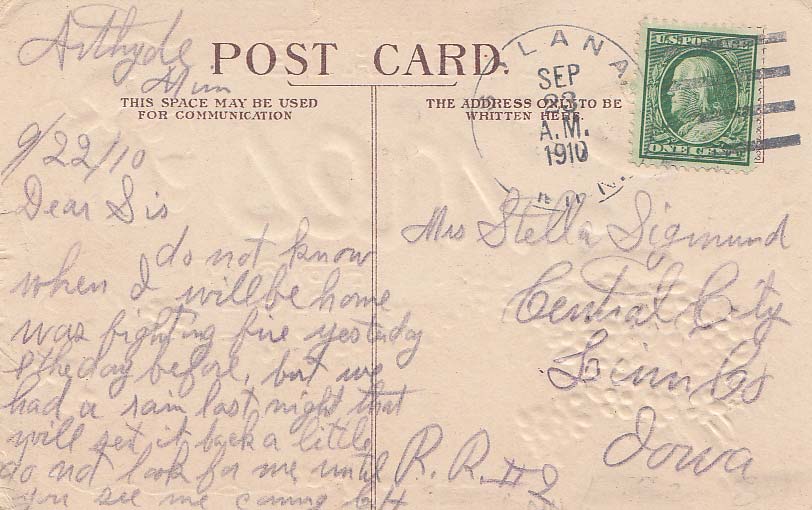 Arthyde
Minn
POST CARD.
THIS SPACE MAY BE USED
FOR COMMUNICATION
THE ADDRESS ONLY TO BE
WRITTEN HERE.
LANA
SEP
23
A.M.
1910
MINN.
U.S. POSTAGE
ONE CENT
9/22/10
Dear Sis
do not know
when I will be home
was fighting fire yesterday
& the day before, but we
had a rain last night that
will set it back a little
do not look for me until
you see me coming
Mrs Stella Sigmund
Central City
Linn Co
Iowa
R. R. #2